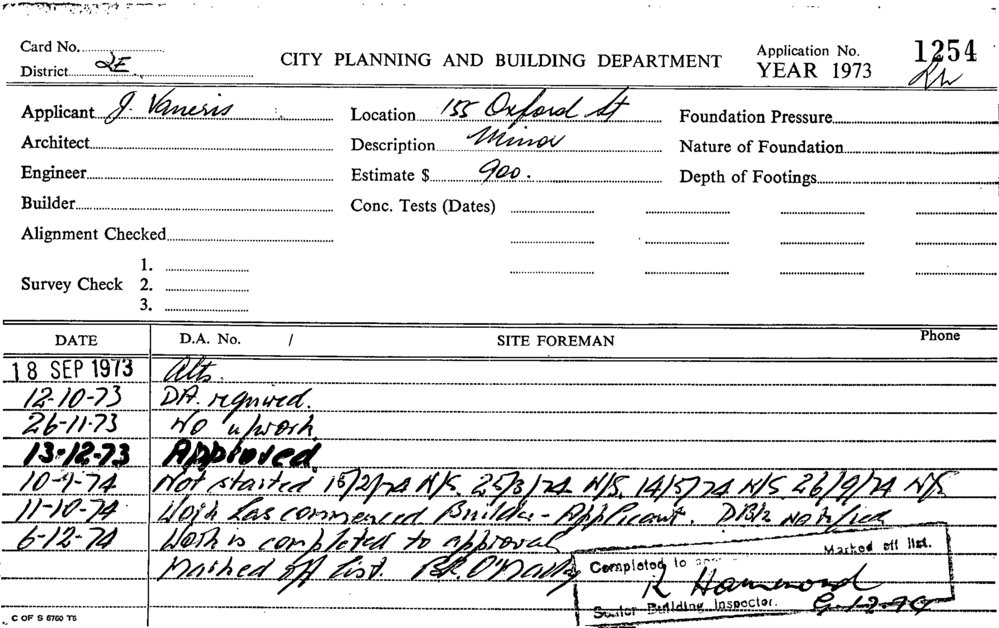 Card No.
District 2E
CITY PLANNING AND BUILDING DEPARTMENT
Application No. 1254
YEAR 1973
Applicant J. Vaneris
Location 155 Oxford St
Foundation Pressure
Architect
Description Minor
Nature of Foundation
Engineer
Estimate $ 900.
Depth of Footings
Builder
Conc. Tests (Dates)
Alignment Checked
Survey Check 1.
2.
3.
DATE D.A. No. / SITE FOREMAN Phone
18 SEP 1973 Alts.
12-10-73 DA. required.
26-11-73 No work.
13-12-73 Approved.
10-1-74 Not started 15/2/74 N/S. 25/3/74 N/S. 14/5/74 N/S 26/9/74 N/S
11-10-74 Work has commenced Builder - Applicant. Notified
6-12-74 Work is completed to approval
Marked off list.
Completed to Marked off list.
R Hammond
Senior Building Inspector.
C OF S 6760 T5